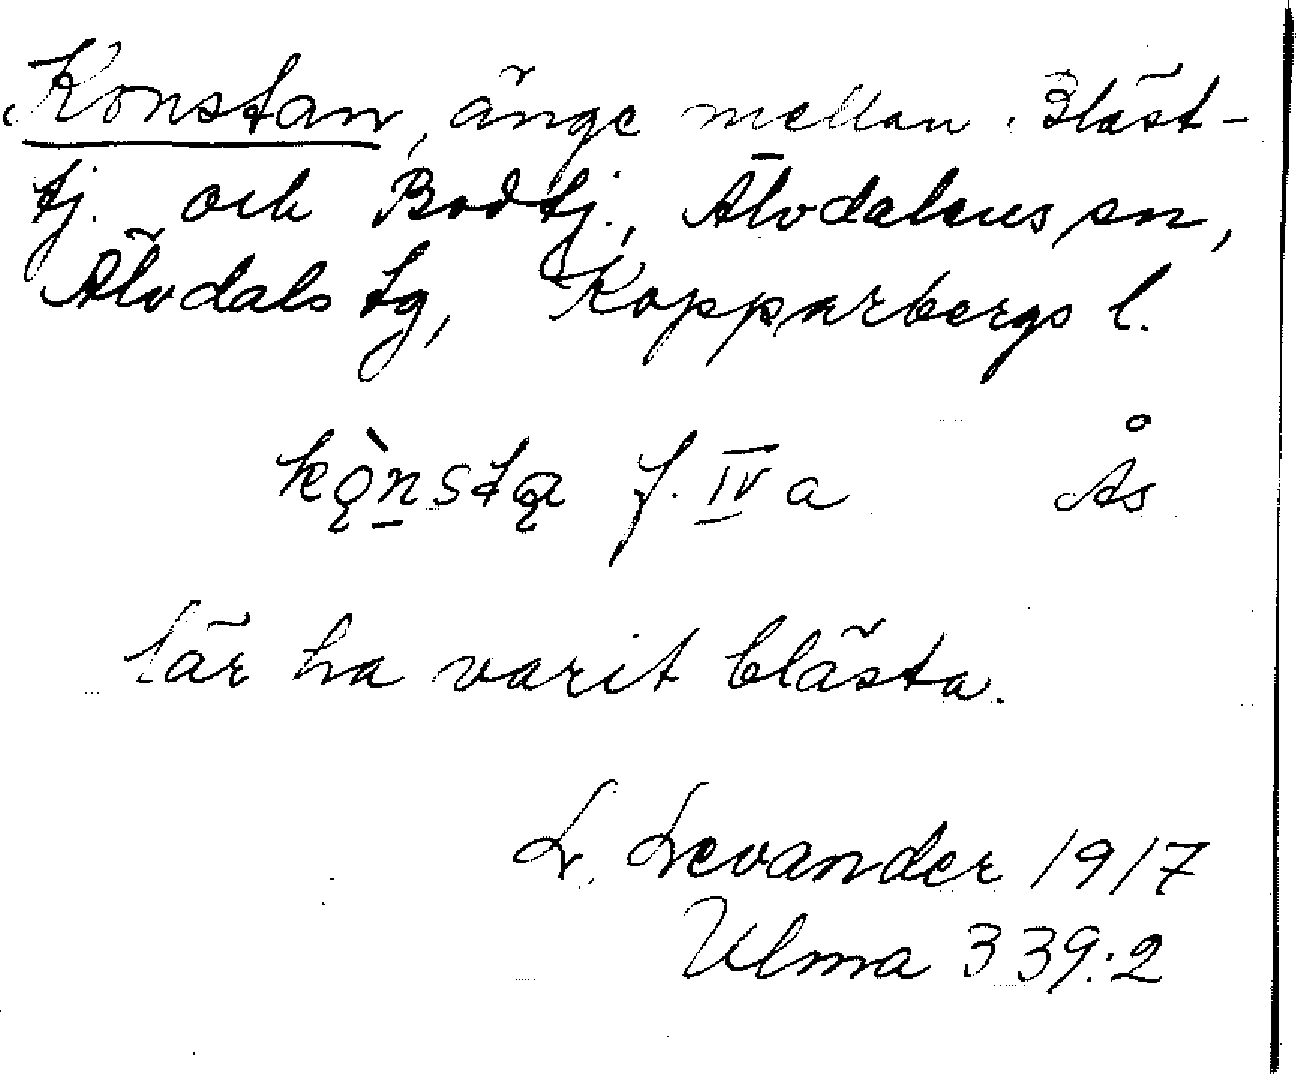 Konstan, änge mellan Bläst-
tj. och Bodtj., Älvdalens sn,
Älvdals tg, Kopparbergs l.
kǫ̀n̠stą f. IV a Ås
lär ha varit blästa.
L. Levander 1917
Ulma 339:2